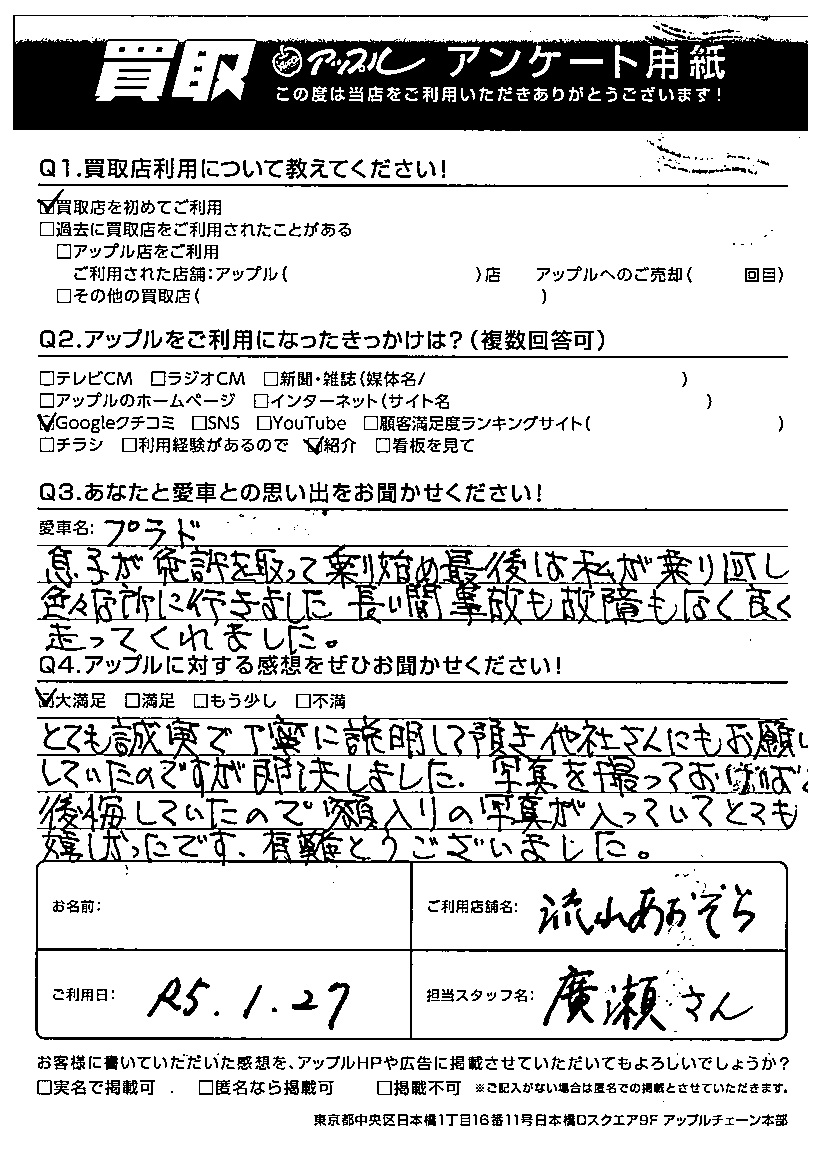 買取 アップル アンケート用紙
この度は当店をご利用いただきありがとうございます!
Q1.買取店利用について教えてください!
☑買取店を初めてご利用
□過去に買取店をご利用されたことがある
□アップル店をご利用
ご利用された店舗:アップル( )店 アップルへのご売却( 回目)
□その他の買取店( )
Q2.アップルをご利用になったきっかけは?(複数回答可)
□テレビCM □ラジオCM □新聞・雑誌(媒体名/ )
□アップルのホームページ □インターネット(サイト名 )
☑Googleクチコミ □SNS □YouTube □顧客満足度ランキングサイト( )
□チラシ □利用経験があるので ☑紹介 □看板を見て
Q3.あなたと愛車との思い出をお聞かせください!
愛車名: プラド
息子が免許を取って乗り始め最後は私が乗り回し
色々な所に行きました 長い間事故も故障もなく良く
走ってくれました。
Q4.アップルに対する感想をぜひお聞かせください!
☑大満足 □満足 □もう少し □不満
とても誠実で丁寧に説明して頂き他社さんにもお願い
していたのですが即決しました. 写真を撮っておけばと
後悔していたので額入りの写真が入っていてとても
嬉しかったです. 有難とうございました。
お名前: ご利用店舗名: 流山あおぞら
ご利用日: R5.1.27 担当スタッフ名: 廣瀬さん
お客様に書いていただいた感想を、アップルHPや広告に掲載させていただいてもよろしいでしょうか?
□実名で掲載可 □匿名なら掲載可 □掲載不可 ※ご記入がない場合は匿名での掲載とさせていただきます。
東京都中央区日本橋1丁目16番11号日本橋Dスクエア9F アップルチェーン本部